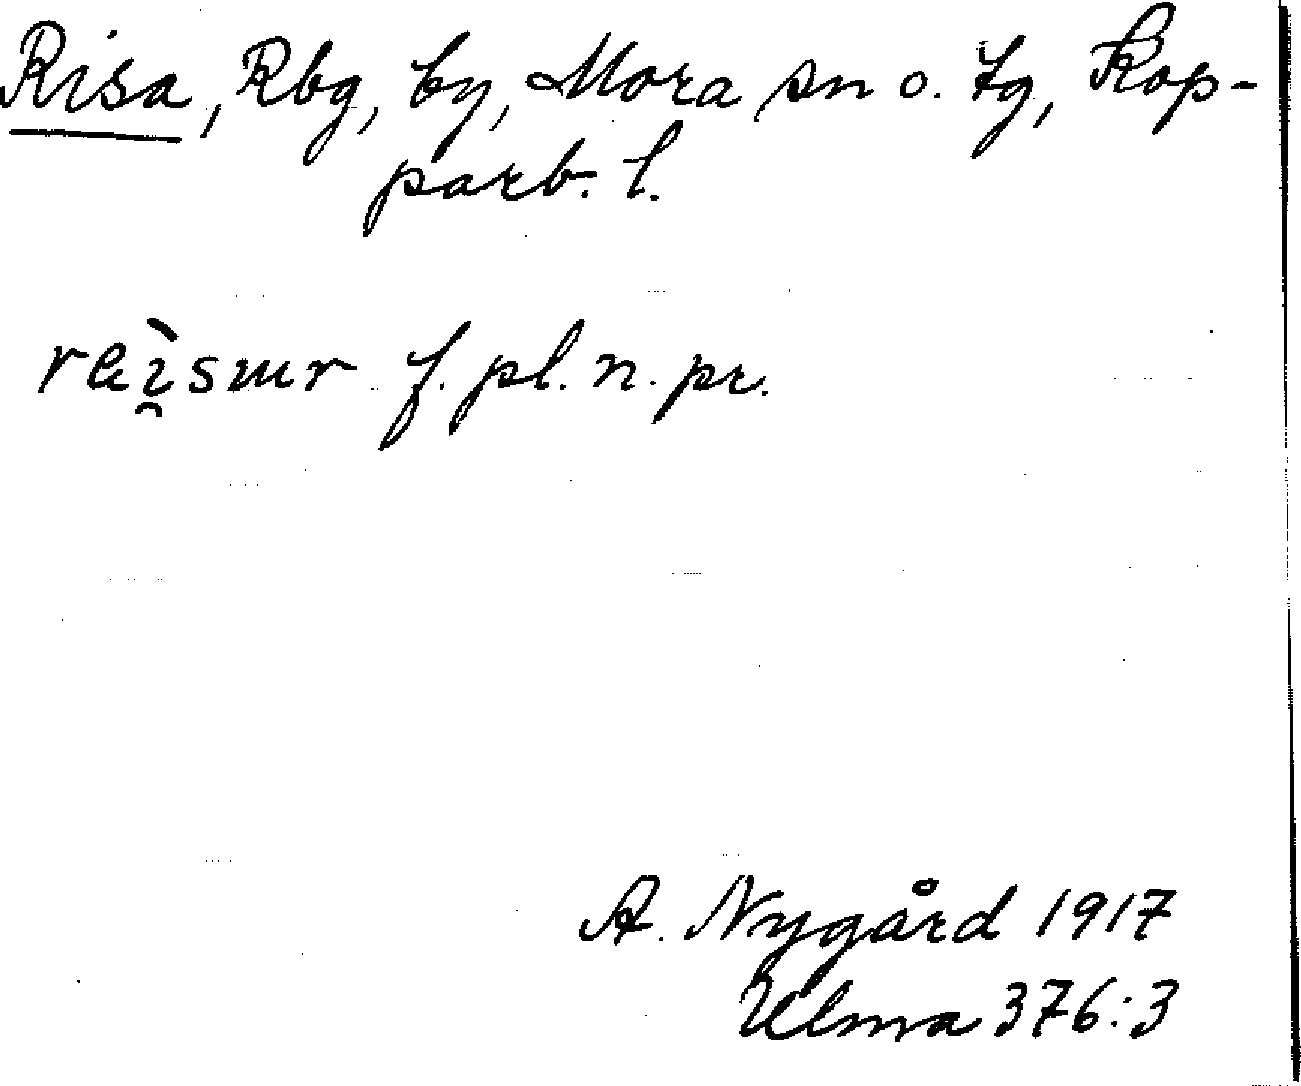 Risa, Rbg, by, Mora sn o. tg, Kop-
parb. l.
raì̯sɯr f. pl. n. pr.
A. Nygård 1917
Ulma 376:3